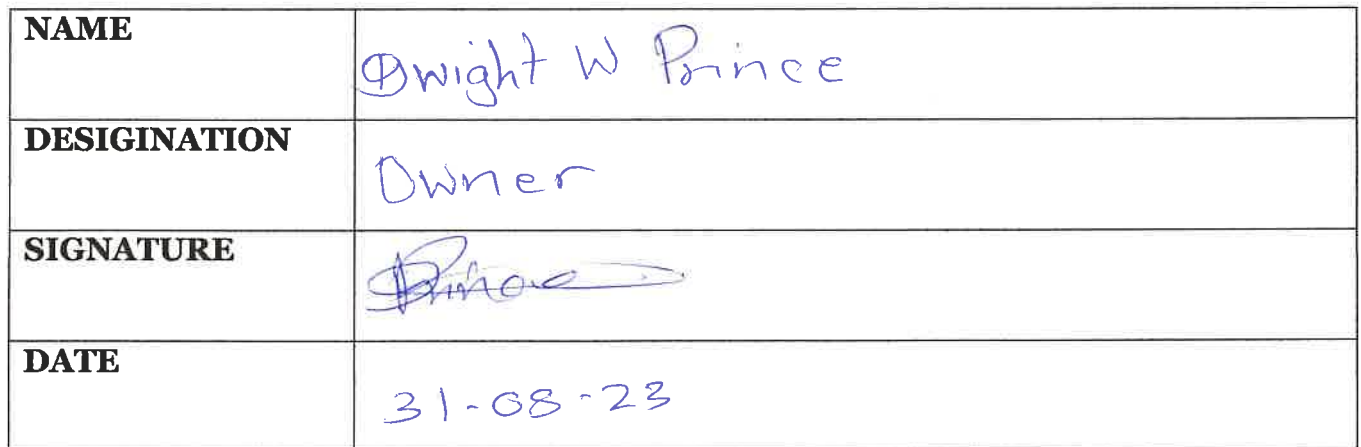 NAME
Dwight W Prince
DESIGINATION
Owner
SIGNATURE
Prince
DATE
31-08-23